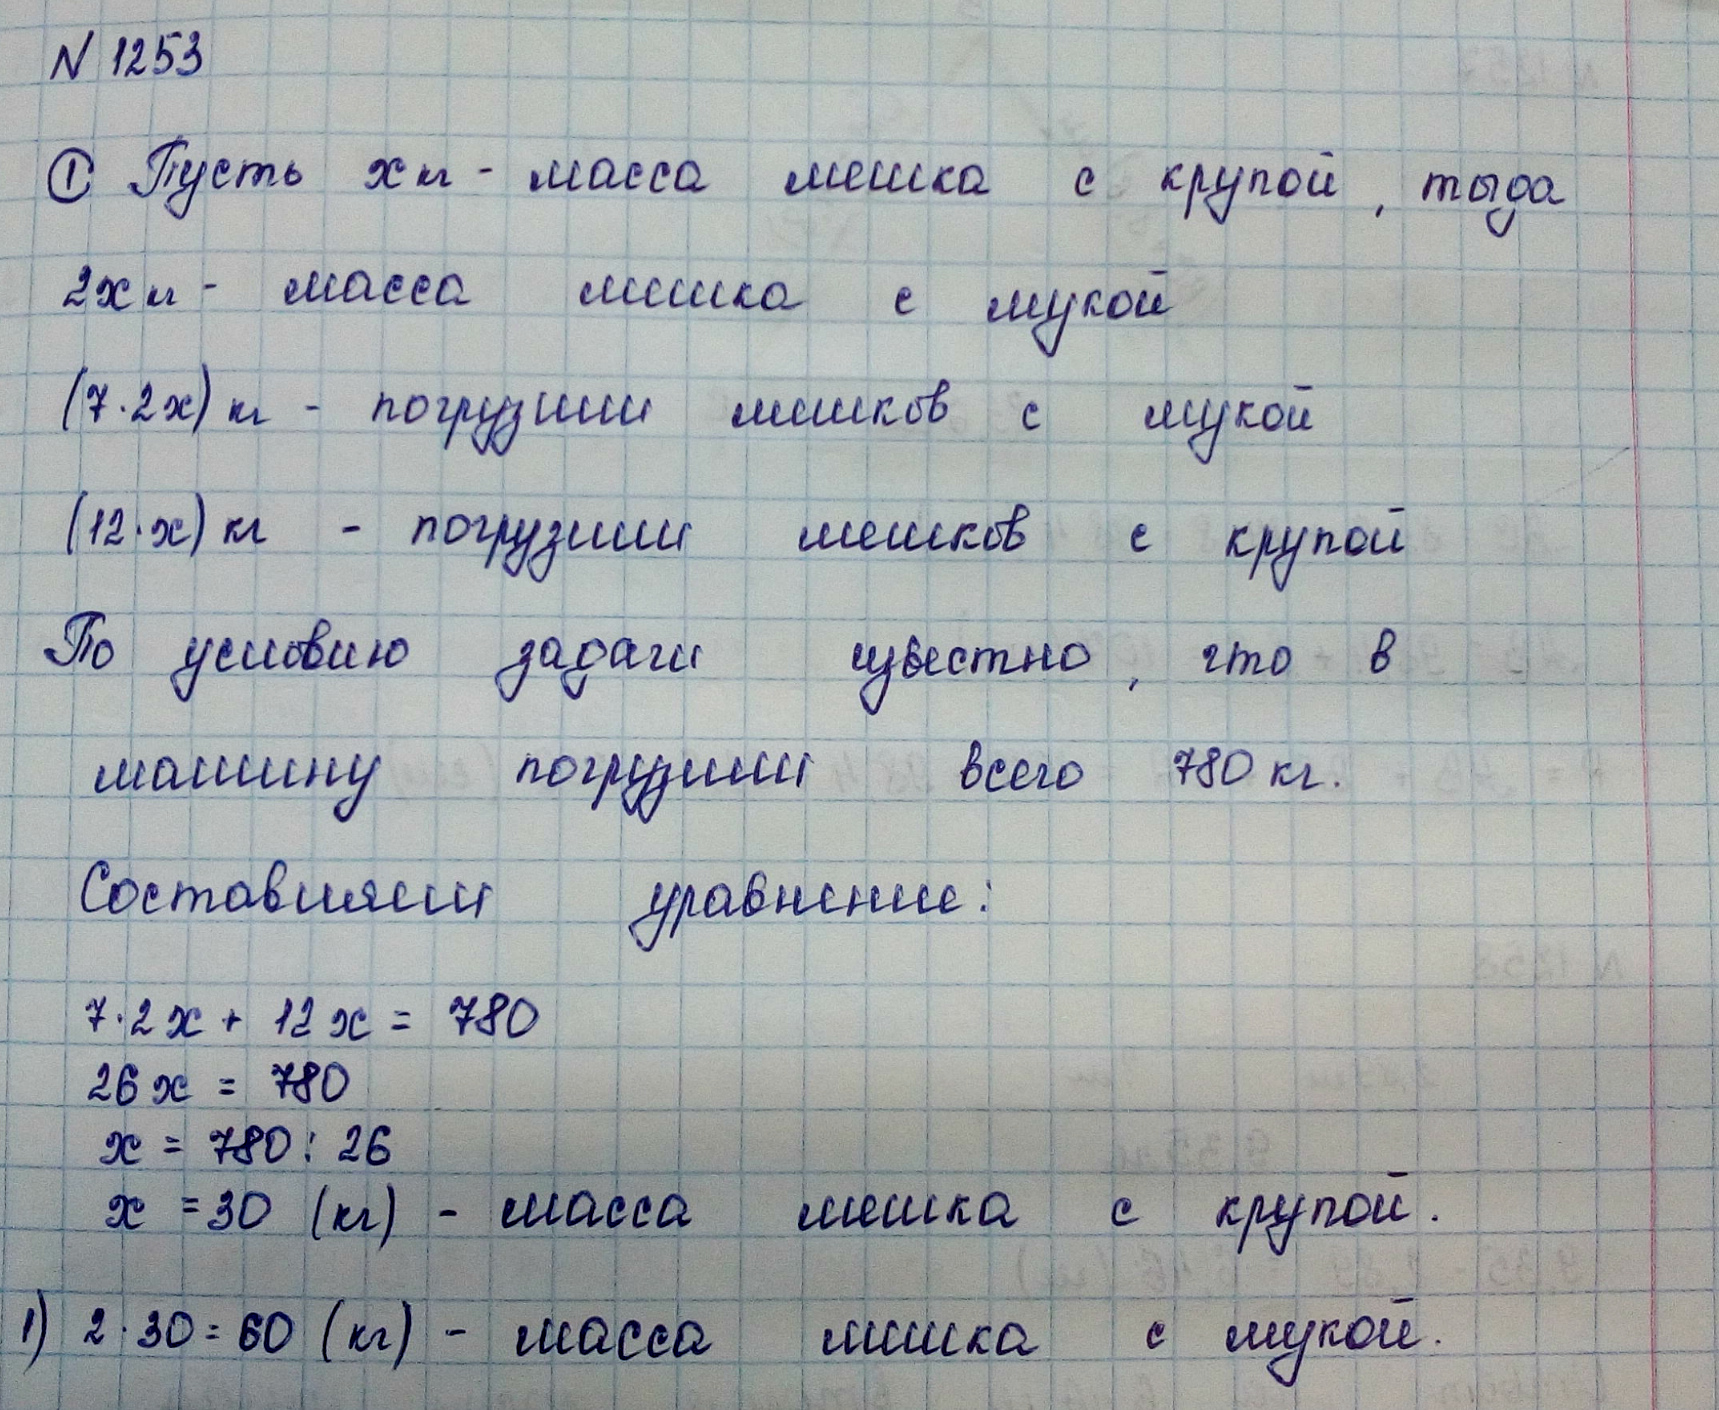 N 1253
① Пусть x кг - масса мешка с крупой, тогда
2x кг - масса мешка с мукой
(7·2x) кг - погрузили мешков с мукой
(12·x) кг - погрузили мешков с крупой
По условию задачи известно, что в
машину погрузили всего 780 кг.
Составляем уравнение:
7·2x + 12x = 780
26x = 780
x = 780 : 26
x = 30 (кг) - масса мешка с крупой.
1) 2·30 = 60 (кг) - масса мешка с мукой.